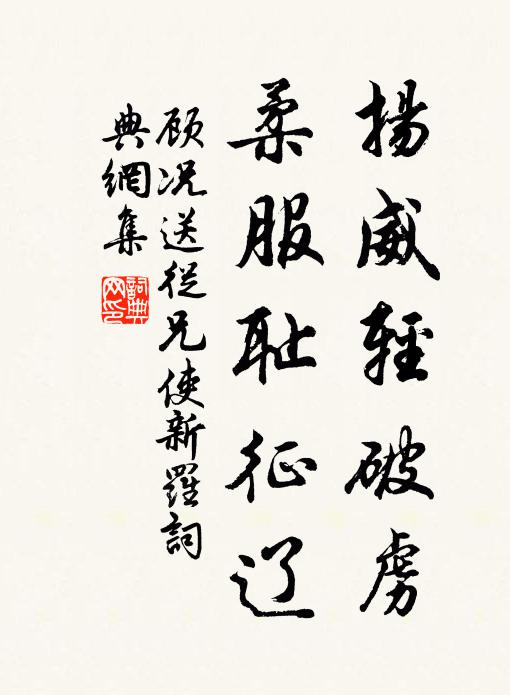 揚威輕破虜
柔服耻征辽
顾况送從兄使新羅詞
典網集
詞典网印